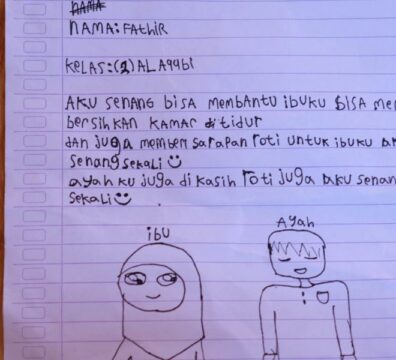 NAMA
NAMA: FATHIR
KELAS: (2) AL Aqqbi
AKU SENANG BISA MEMBANTU IBUKU BISA
BERSIHKAN KAMAR di TIDUR
DAN JUGA MEMBERI SARAPAN ROTI UNTUK IBUKU
SENANG SEKALI
AYAH KU JUGA di KASIH ROTI JUGA AKU SENAN
SEKALI
iBU
AYAH